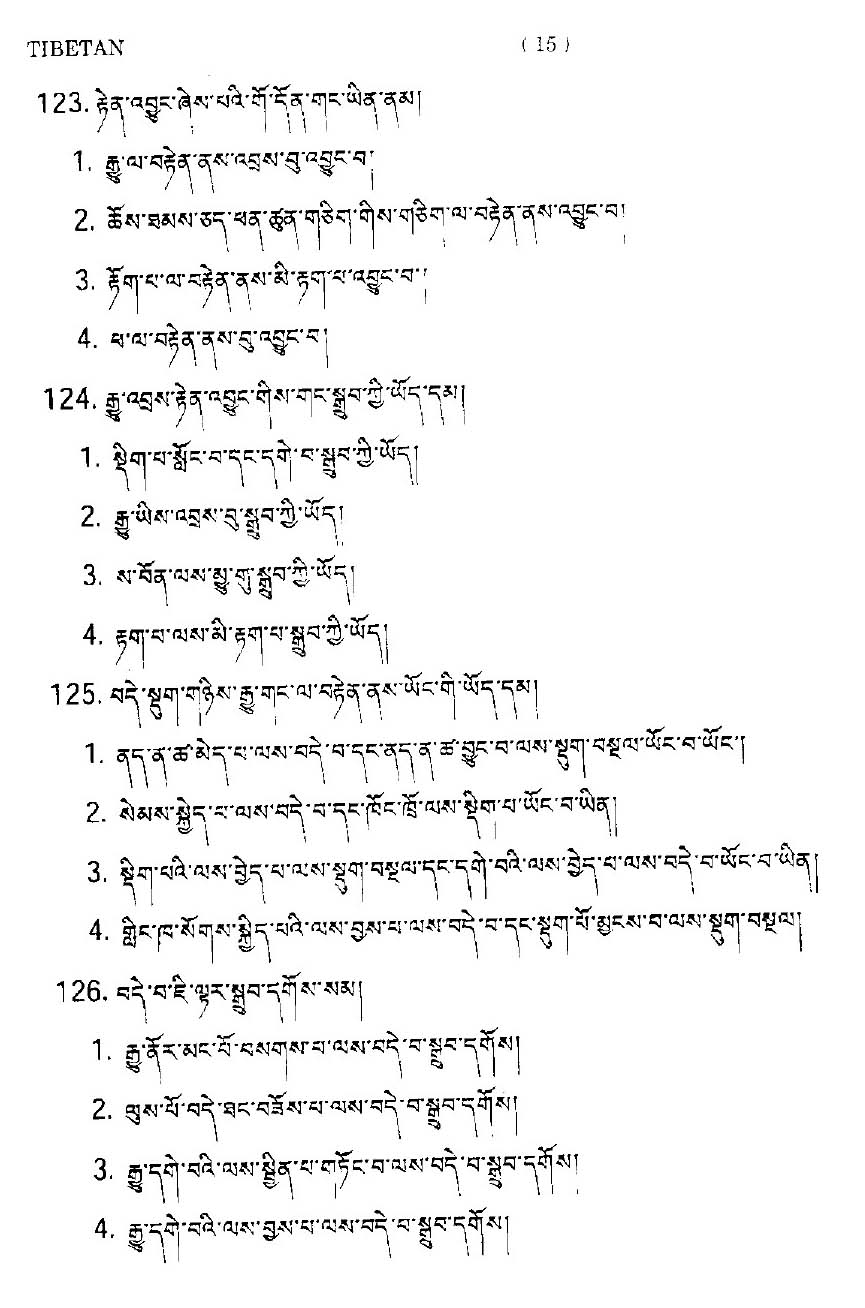 TIBETAN ( 15 )
123. རྟེན་འབྱུང་ཞེས་པའི་གོ་དོན་གང་ཡིན་ནམ།
1. རྒྱུ་ལ་བརྟེན་ནས་འབྲས་བུ་འབྱུང་བ།
2. ཆོས་ཐམས་ཅད་ཕན་ཚུན་གཅིག་གིས་གཅིག་ལ་བརྟེན་ནས་འབྱུང་བ།
3. རྟོག་པ་ལ་བརྟེན་ནས་མི་རྟག་པ་འབྱུང་བ་།
4. ཕ་ལ་བརྟེན་ནས་བུ་འབྱུང་བ།
124. རྒྱུ་འབྲས་རྟེན་འབྱུང་གིས་གང་སྒྲུབ་ཀྱི་ཡོད་དམ།
1. སྡིག་པ་སློང་བ་དང་དགེ་བ་སྒྲུབ་ཀྱི་ཡོད།
2. རྒྱུ་ཡིས་འབྲས་བུ་སྒྲུབ་ཀྱི་ཡོད།
3. ས་བོན་ལས་མྱུ་གུ་སྒྲུབ་ཀྱི་ཡོད།
4. རྟག་པ་ལས་མི་རྟག་པ་སྒྲུབ་ཀྱི་ཡོད།
125. བདེ་སྡུག་གཉིས་རྒྱུ་གང་ལ་བརྟེན་ནས་ཡོང་གི་ཡོད་དམ།
1. ནད་ན་ཚ་མེད་པ་ལས་བདེ་བ་དང་ནད་ན་ཚ་བྱུང་བ་ལས་སྡུག་བསྔལ་ཡོང་བ་ཡོང་།
2. སེམས་སྐྱེད་པ་ལས་བདེ་བ་དང་ཁོང་ཁྲོ་ལས་སྡིག་པ་ཡོང་བ་ཡིན།
3. སྡིག་པའི་ལས་བྱེད་པ་ལས་སྡུག་བསྔལ་དང་དགེ་བའི་ལས་བྱེད་པ་ལས་བདེ་བ་ཡོང་བ་ཡིན།
4. གླིང་ཁ་སོགས་སྐྱིད་པའི་ལས་བྱས་པ་ལས་བདེ་བ་དང་སྡུག་པོ་མྱངས་བ་ལས་སྡུག་བསྔལ།
126. བདེ་བ་ཇི་ལྟར་སྒྲུབ་དགོས་སམ།
1. རྒྱུ་ནོར་མང་པོ་བསགས་པ་ལས་བདེ་བ་སྒྲུབ་དགོས།
2. ལུས་པོ་བདེ་ཐང་བཟོས་པ་ལས་བདེ་བ་སྒྲུབ་དགོས།
3. རྒྱུ་དགེ་བའི་ལས་སྦྱིན་པ་གཏོང་བ་ལས་བདེ་བ་སྒྲུབ་དགོས།
4. རྒྱུ་དགེ་བའི་ལས་བྱས་པ་ལས་བདེ་བ་སྒྲུབ་དགོས།